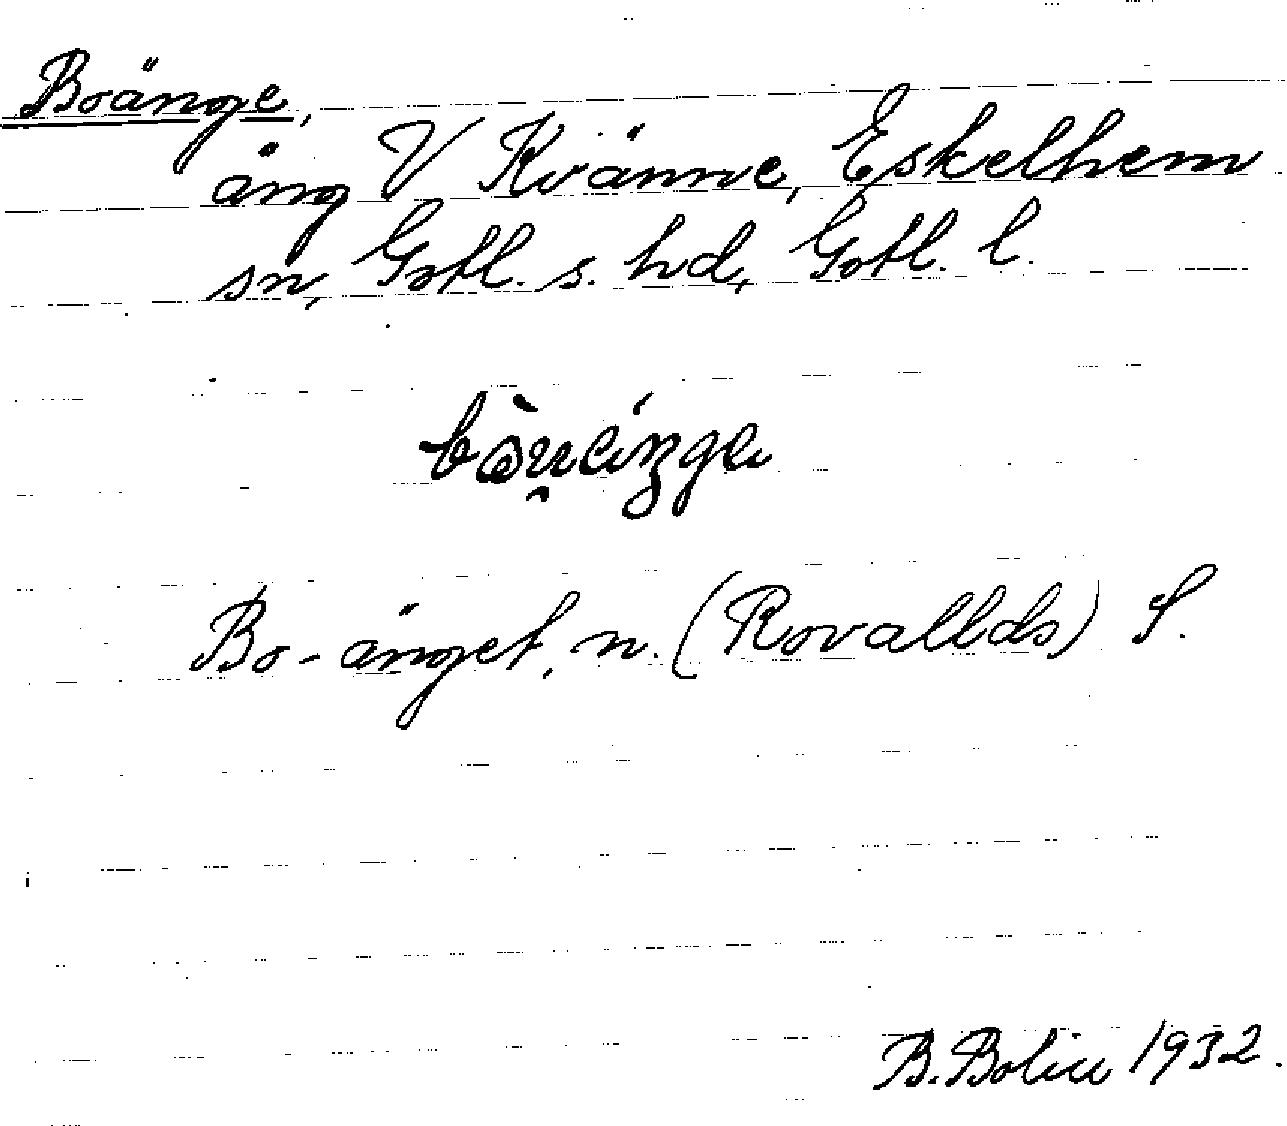 Broänge,
äng V Kvänne, Eskelhem
sn, Gotl. s. hd, Gotl. l.
Bo-änget, n. (Rovallds) S.
B. Bolin 1932.